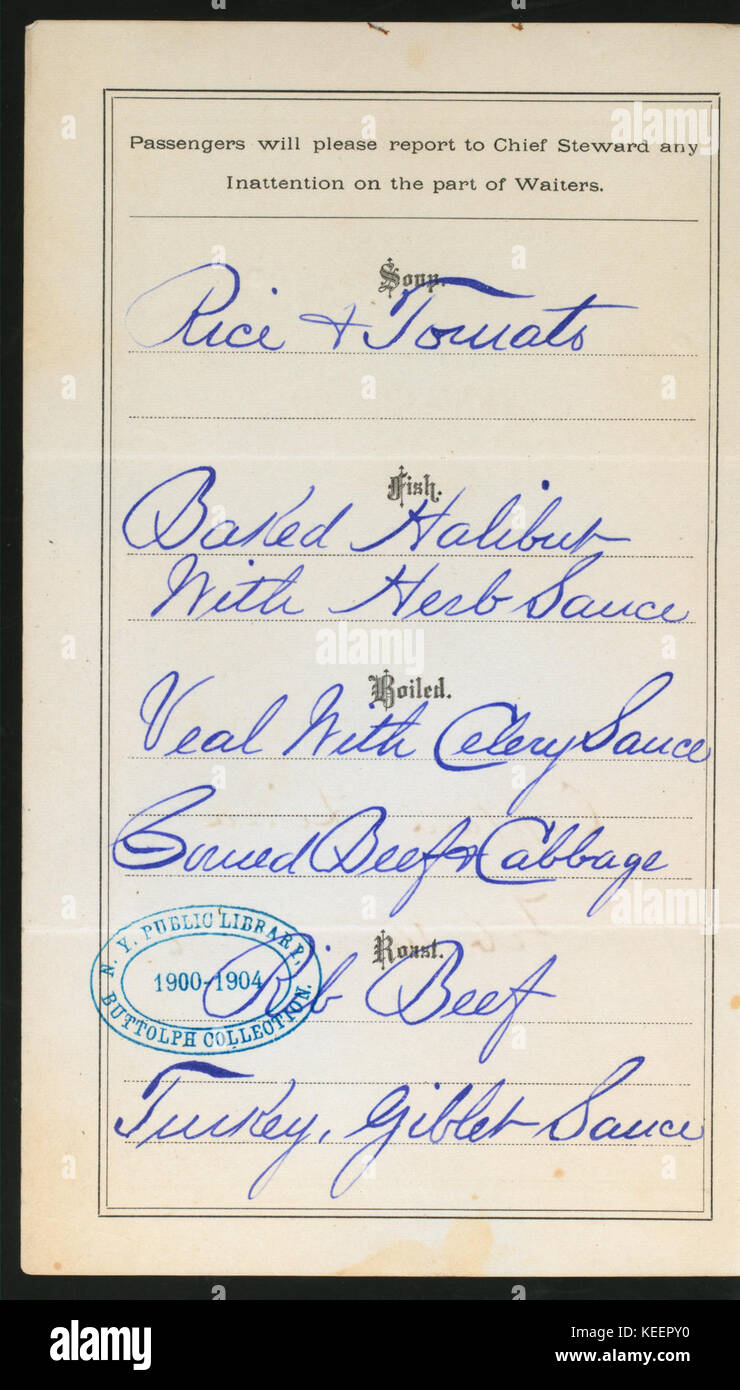 Passengers will please report to Chief Steward any
Inattention on the part of Waiters.
Soup.
Rice & Tomato
Fish.
Baked Halibut
With Herb Sauce
Boiled.
Veal With Celery Sauce
Corned Beef & Cabbage
Roast.
N. Y. PUBLIC LIBRARY,
1900-1904
BUTTOLPH COLLECTION.
Rib Beef
Turkey, Giblet Sauce
alamy
Image ID: KEEPY0
www.alamy.com